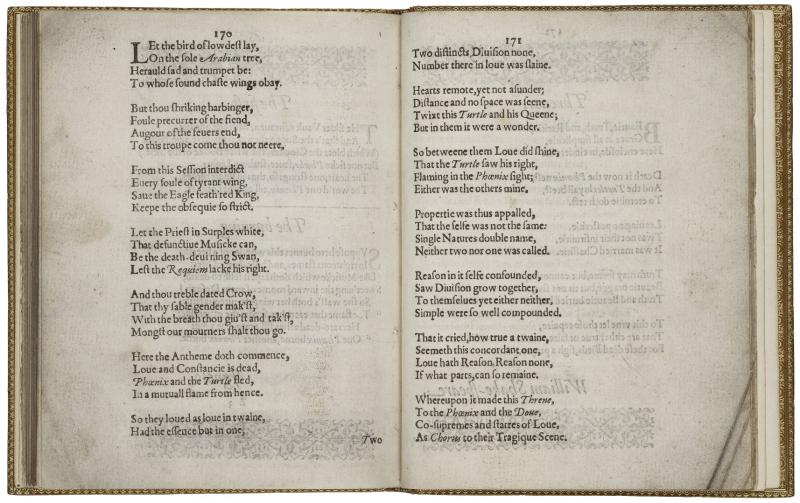 170
LEt the bird of lowdest lay,
On the sole Arabian tree,
Herauld sad and trumpet be:
To whose sound chaste wings obay.
But thou shriking harbinger,
Foule precurrer of the fiend,
Augour of the feuers end,
To this troupe come thou not neere.
From this Session interdict
Euery soule of tyrant wing,
Saue the Eagle feath'red King,
Keepe the obsequie so strict.
Let the Priest in Surples white,
That defunctiue Musicke can,
Be the death-deuining Swan,
Lest the Requiem lacke his right.
And thou treble dated Crow,
That thy sable gender mak'st,
With the breath thou giu'st and tak'st,
Mongst our mourners shalt thou go.
Here the Antheme doth commence,
Loue and Constancie is dead,
Phœnix and the Turtle fled,
In a mutuall flame from hence.
So they loued as loue in twaine,
Had the essence but in one,
Two
171
Two distincts, Diuision none,
Number there in loue was slaine.
Hearts remote, yet not asunder;
Distance and no space was seene,
Twixt this Turtle and his Queene;
But in them it were a wonder.
So betweene them Loue did shine,
That the Turtle saw his right,
Flaming in the Phœnix sight;
Either was the others mine.
Propertie was thus appalled,
That the selfe was not the same:
Single Natures double name,
Neither two nor one was called.
Reason in it selfe confounded,
Saw Diuision grow together,
To themselues yet either neither,
Simple were so well compounded.
That it cried, how true a twaine,
Seemeth this concordant one,
Loue hath Reason, Reason none,
If what parts, can so remaine.
Whereupon it made this Threne,
To the Phœnix and the Doue,
Co-supremes and starres of Loue,
As Chorus to their Tragique Scene.